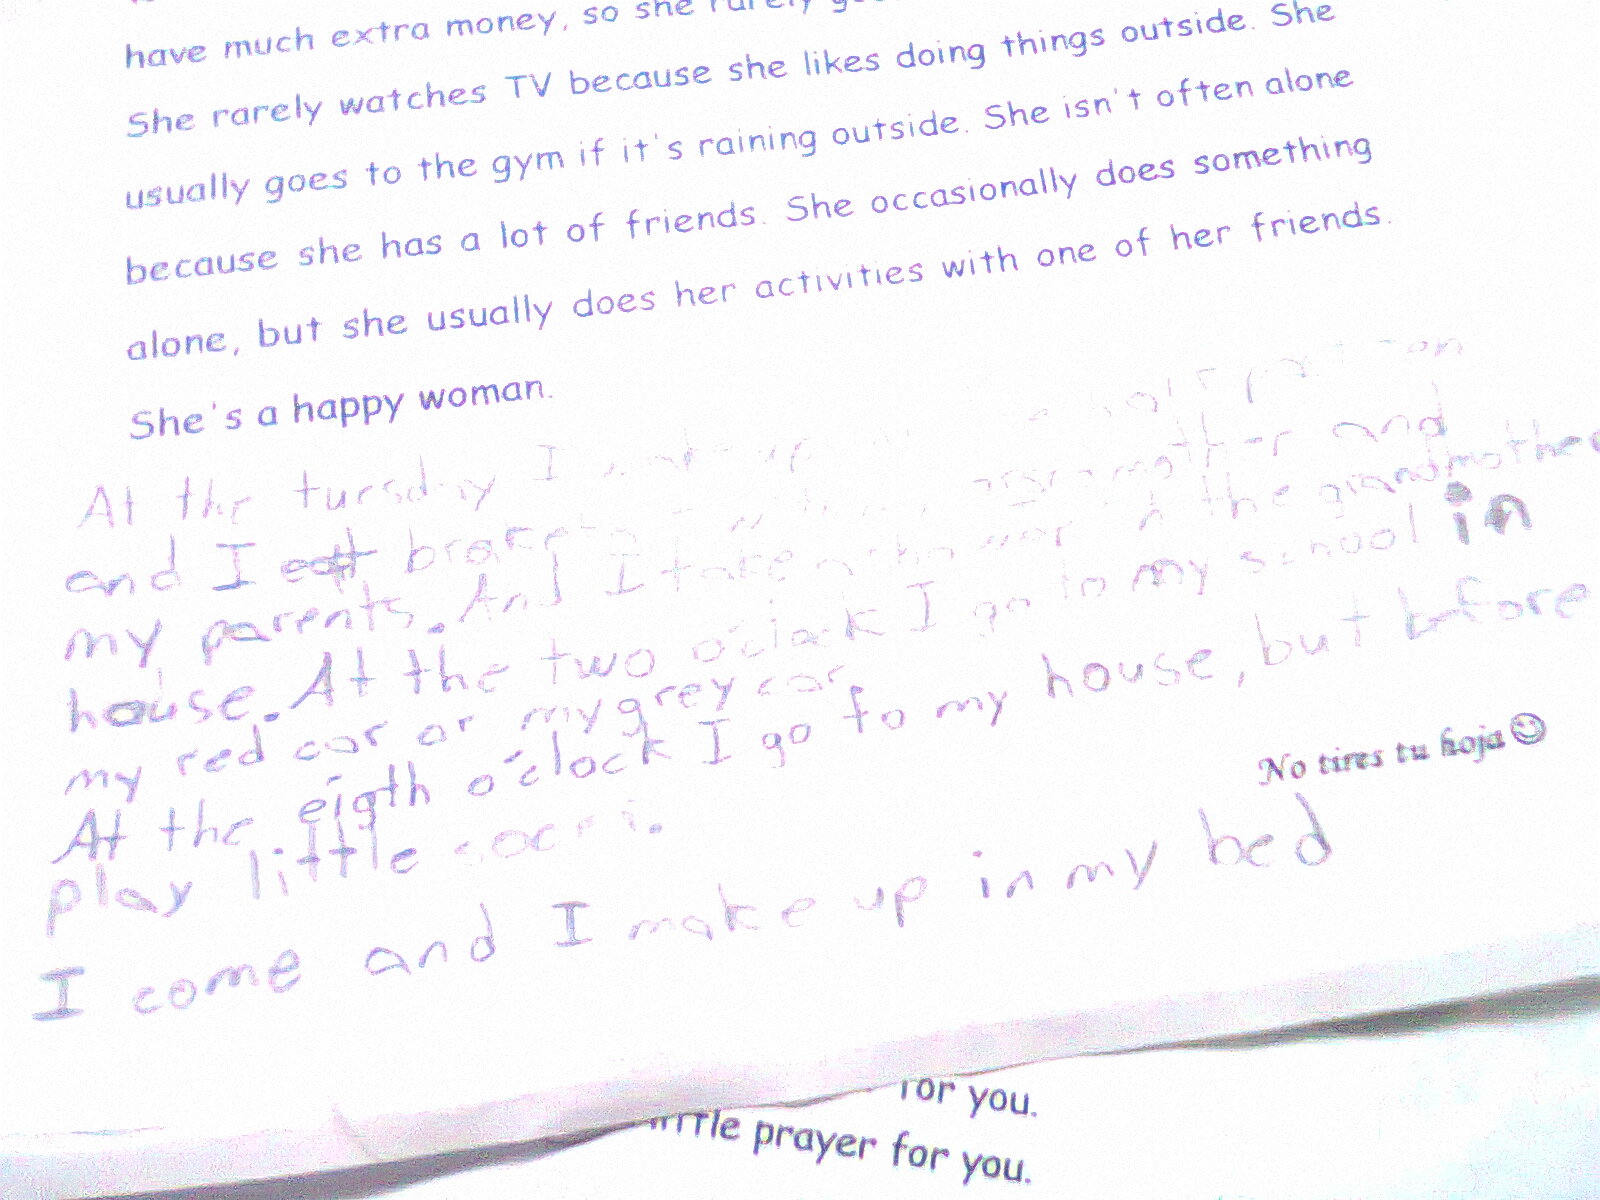 have much extra money, so she rarely
She rarely watches TV because she likes doing things outside. She
usually goes to the gym if it's raining outside. She isn't often alone
because she has a lot of friends. She occasionally does something
alone, but she usually does her activities with one of her friends.
She's a happy woman.
At the tuesday I up
and I eat and
my parents. And I take a in the grandmother
house. At the two o'clack I go to my school in
my red car or my grey car
At the eigth o'clock I go to my house, but before
play little
No tires tu hoja
I come and I make up in my bed
for you.
little prayer for you.